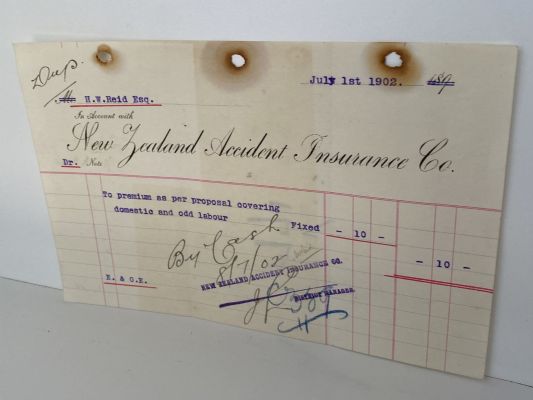 Dup.
July 1st 1902. 489
M H.W.Reid Esq.
In Account with
New Zealand Accident Insurance Co.
Dr. Note
To premium as per proposal covering
domestic and odd labour Fixed - 10 -
- 10 -
By Cash
8/7/02
E. & O.E.
NEW ZEALAND ACCIDENT INSURANCE CO.
DISTRICT MANAGER.